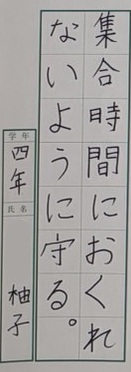 集合時間におくれ
ないように守る。
学年
四年
氏名
柚子